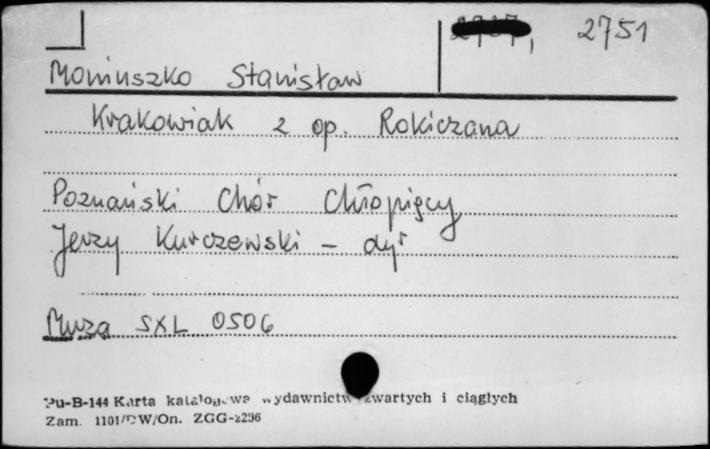 2751
Moniuszko Stanisław
Krakowiak z op. Rokiczana
Poznański Chór Chłopięcy
Jerzy Kurczewski - dyr
Muza SXL 0506
Pu-B-144 Karta katalogowa wydawnictw zwartych i ciągłych
Zam. 1101/DW/On. ZGG-2296